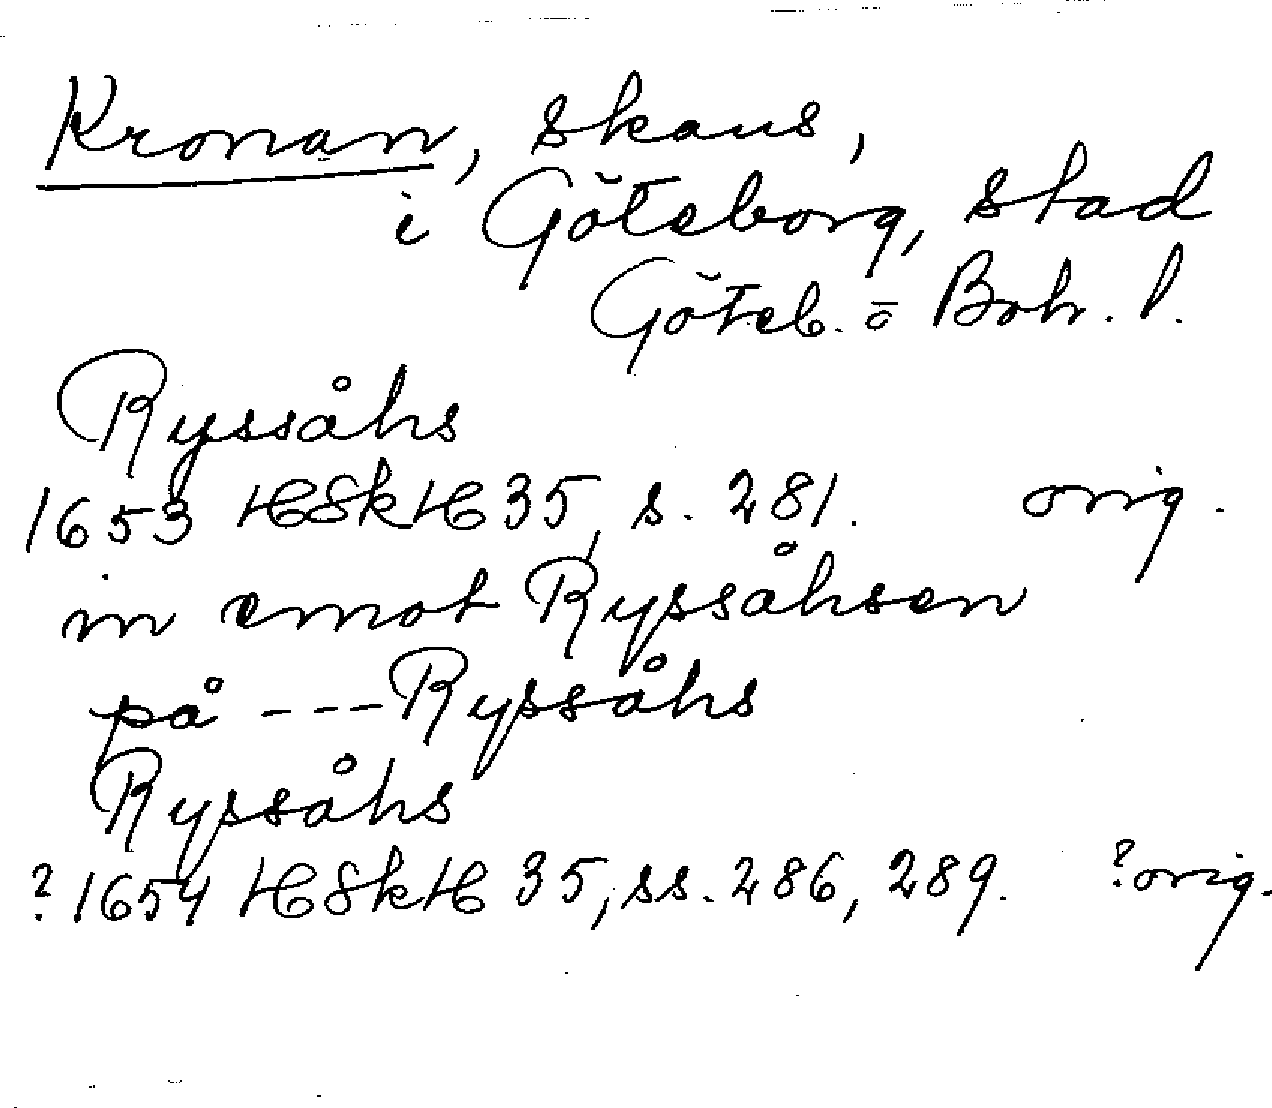 Kronan, skans,
i Göteborg, stad
Göteb. o Boh. l.
Ryssåhs
1653 HSkH 35, s. 281. orig.
in emot Ryssåhsen
på --- Ryssåhs
Ryssåhs
? 1654 HSkH 35, ss. 286, 289. ? orig.